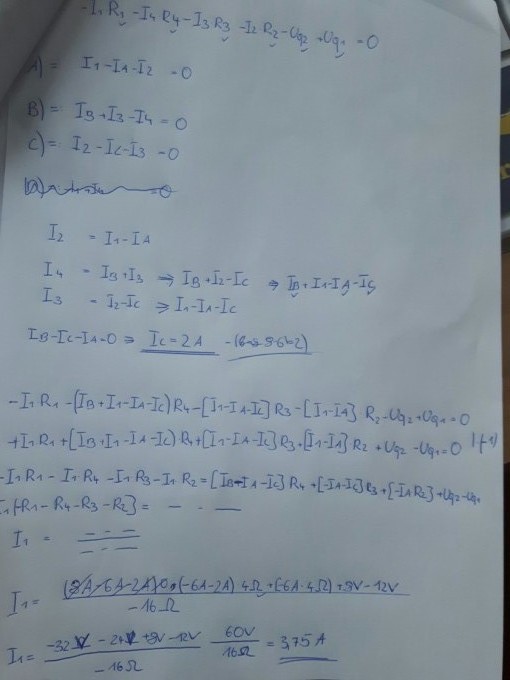 -I1 R1 -I4 R4 -I3 R3 -I2 R2 -Uq2 +Uq1 =0
A)= I1-IA-I2 =0
B)= IB+I3-I4=0
C)= I2-IC-I3 =0
I2 = I1-IA
I4 = IB+I3 ⇒ IB+I2-IC ⇒ IB+I1-IA-IC
I3 = I2-IC ⇒ I1-IA-IC
IB-IC-IA=0 ⇒ IC=2A
-I1R1 -(IB+I1-IA-IC)R4-[I1-IA-IC]R3-[I1-IA] R2-Uq2+Uq1=0
+I1R1+[IB+I1-IA-IC)R4+[I1-IA-IC]R3+[I1-IA]R2 +Uq2 -Uq1=0 |(-1)
-I1R1 - I1R4 -I1R3-I1R2=[IB-IA-IC]R4+[-IA-IC]R3+[-IAR2]+Uq2-Uq1
I1[-R1-R4-R3-R2]= - . -
I1 = - - - / - - -
I1= (8A-6A-2A)0+(-6A-2A) 4Ω+(-6A·4Ω)+8V-12V / -16Ω
I1= -32V-24V+8V-12V / -16Ω 60V / 16Ω = 3,75A